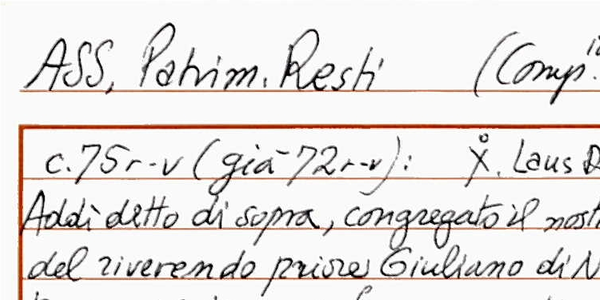 ASS, Patrim. Resti (Comp.
c. 75r-v (già 72r-v): X. Laus D
Addì detto di sopra, congregato il nost
del riverendo priore Giuliano di N